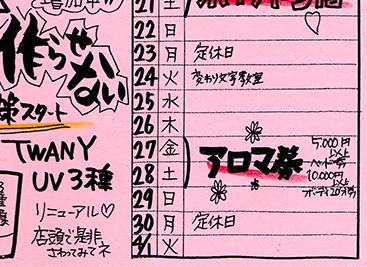 作らせ
ない
スタート
TWANY
UV3種
リニューアル♡
店頭で是非
さわってみてネ
21 土
22 日
23 月 定休日
24 火 変わり文字教室
25 水
26 木
27 金
28 土
29 日
30 月 定休日
4/1 火
アロマ券
5.000円
以上
ヘッド券
10.000円
以上
ボディ20分券